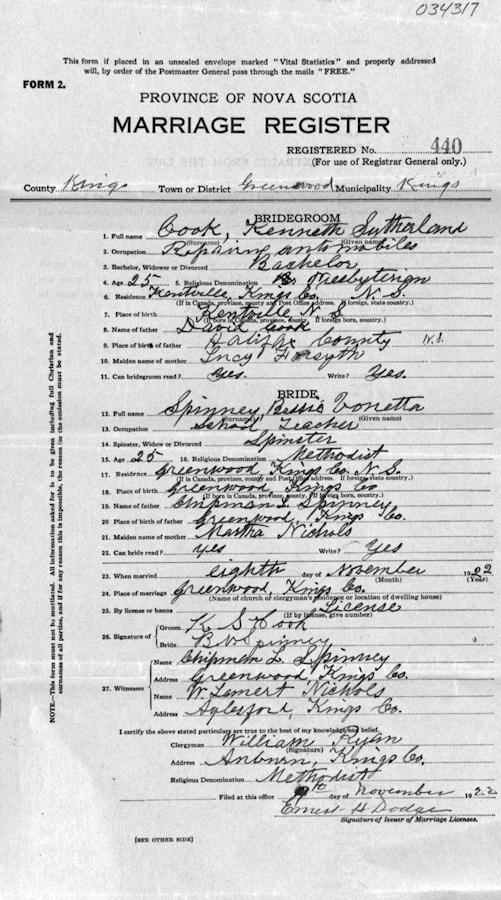 034317
This form if placed in an unsealed envelope marked "Vital Statistics" and properly addressed
will, by order of the Postmaster General pass through the mails "FREE."
FORM 2.
PROVINCE OF NOVA SCOTIA
MARRIAGE REGISTER
REGISTERED No. 440
(For use of Registrar General only.)
County Kings Town or District Greenwood Municipality Kings
BRIDEGROOM
1. Full name Cook, Kenneth Sutherland
(Surname) (Given name)
2. Occupation Repairing automobiles
3. Bachelor, Widower or Divorced Bachelor
4. Age 25 5. Religious Denomination Presbyterian
6. Residence Kentville, Kings Co. N. S.
(If in Canada, province, county and Post Office address. If foreign, state country.)
7. Place of birth Kentville N. S.
(If born in Canada, province, county. If foreign born, country.)
8. Name of father David Cook
9. Place of birth of father Halifax County N.S.
10. Maiden name of mother Lucy Forsyth
11. Can bridegroom read? Yes. Write? Yes.
BRIDE
12. Full name Spinney, Bessie Vonetta
(Surname) (Given name)
13. Occupation School Teacher
14. Spinster, Widow or Divorced Spinster
15. Age 25 16. Religious Denomination Methodist
17. Residence Greenwood, Kings Co. N. S.
(If in Canada, province, county and Post Office address. If foreign, state country.)
18. Place of birth Greenwood, Kings Co
(If born in Canada, province, county. If foreign born, country.)
19. Name of father Chipman L. Spinney
20. Place of birth of father Greenwood, Kings Co.
21. Maiden name of mother Martha Nichols
22. Can bride read? Yes Write? Yes
23. When married eighth day of November 1922
(Month) (Year)
24. Place of marriage Greenwood Kings Co.
(Name of church or clergyman's residence or location of dwelling house)
25. By license or banns License
(If by license, give number)
26. Signature of Groom K S Cook
Bride B V Spinney
27. Witnesses Name Chipman L. Spinney
Address Greenwood, Kings Co.
Name W. Lemert Nichols
Address Aylesford, Kings Co.
I certify the above stated particulars are true to the best of my knowledge and belief.
Clergyman William Ryan
(Signature)
Address Auburn, Kings Co.
Religious Denomination Methodist
Filed at this office day of November 1922
Ernest H Dodge
Signature of Issuer of Marriage Licenses.
(SEE OTHER SIDE)
NOTE—This form must not be mutilated. All information asked for is to be given including full Christian and
surnames of all parties, and if for any reason this is impossible, the reason for the omission must be stated.